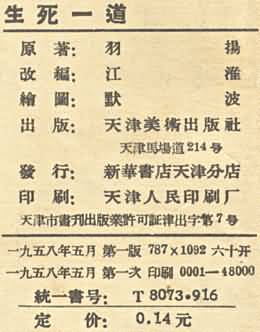 生死一道
原著：羽揚
改編：江淮
繪圖：默波
出版：天津美術出版社
天津馬場道214号
發行：新華書店天津分店
印刷：天津人民印刷厂
天津市書刊出版業許可証津出字第7号
一九五八年五月 第一版 787×1092 六十开
一九五八年五月 第一次 印刷 0001—48000
統一書号：T8073·916
定价：0.14元